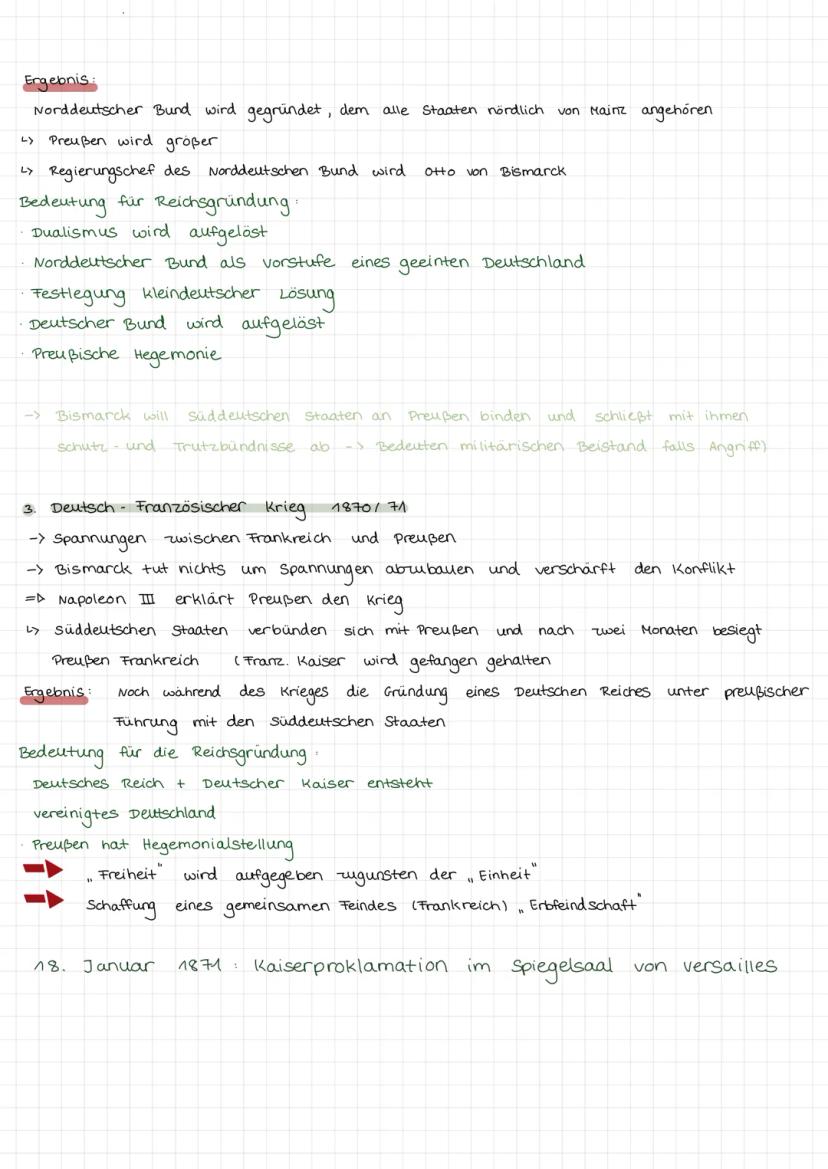 Ergebnis:
Norddeutscher Bund wird gegründet, dem alle Staaten nördlich von Mainz angehören
↳ Preußen wird größer
↳ Regierungschef des Norddeutschen Bund wird Otto von Bismarck
Bedeutung für Reichsgründung:
· Dualismus wird aufgelöst
· Norddeutscher Bund als Vorstufe eines geeinten Deutschland
· Festlegung kleindeutscher Lösung
· Deutscher Bund wird aufgelöst
· Preußische Hegemonie
-> Bismarck will Süddeutschen Staaten an Preußen binden und schließt mit ihnen
Schutz- und Trutzbündnisse ab -> Bedeuten militärischen Beistand falls Angriff)
3. Deutsch-Französischer Krieg 1870/71
-> Spannungen zwischen Frankreich und Preußen
-> Bismarck tut nichts um Spannungen abzubauen und verschärft den Konflikt
=> Napoleon III erklärt Preußen den Krieg
↳ Süddeutschen Staaten verbünden sich mit Preußen und nach zwei Monaten besiegt
Preußen Frankreich (Franz. Kaiser wird gefangen gehalten
Ergebnis: Noch während des Krieges die Gründung eines Deutschen Reiches unter preußischer
Führung mit den Süddeutschen Staaten
Bedeutung für die Reichsgründung:
Deutsches Reich + Deutscher Kaiser entsteht
vereinigtes Deutschland
· Preußen hat Hegemonialstellung
„Freiheit" wird aufgegeben zugunsten der „Einheit"
Schaffung eines gemeinsamen Feindes (Frankreich) „Erbfeindschaft"
18. Januar 1871: Kaiserproklamation im Spiegelsaal von Versailles